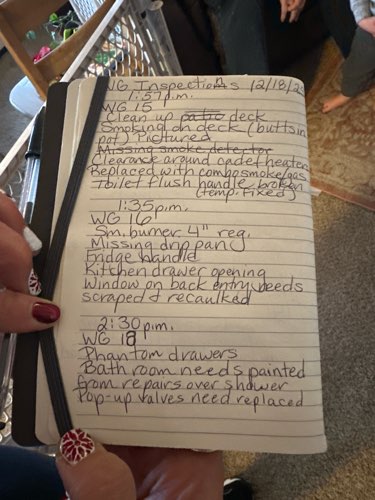 WG Inspections 12/18/25
1:57p.m.
WG 15
Clean up patio deck
Smoking on deck (butts in
pot) Pictured
Missing smoke detector
Clearance around cadet heater
Replaced with combo smoke/gas
Toilet flush handle broken
(temp. Fixed)
1:35p.m.
WG 16
Sm. burner 4" reg.
Missing drip pan
Fridge handle
Kitchen drawer opening
Window on back entry needs
scraped & recaulked
2:30p.m.
WG 18
Phantom drawers
Bathroom needs painted
from repairs over shower
Pop-up valves need replaced